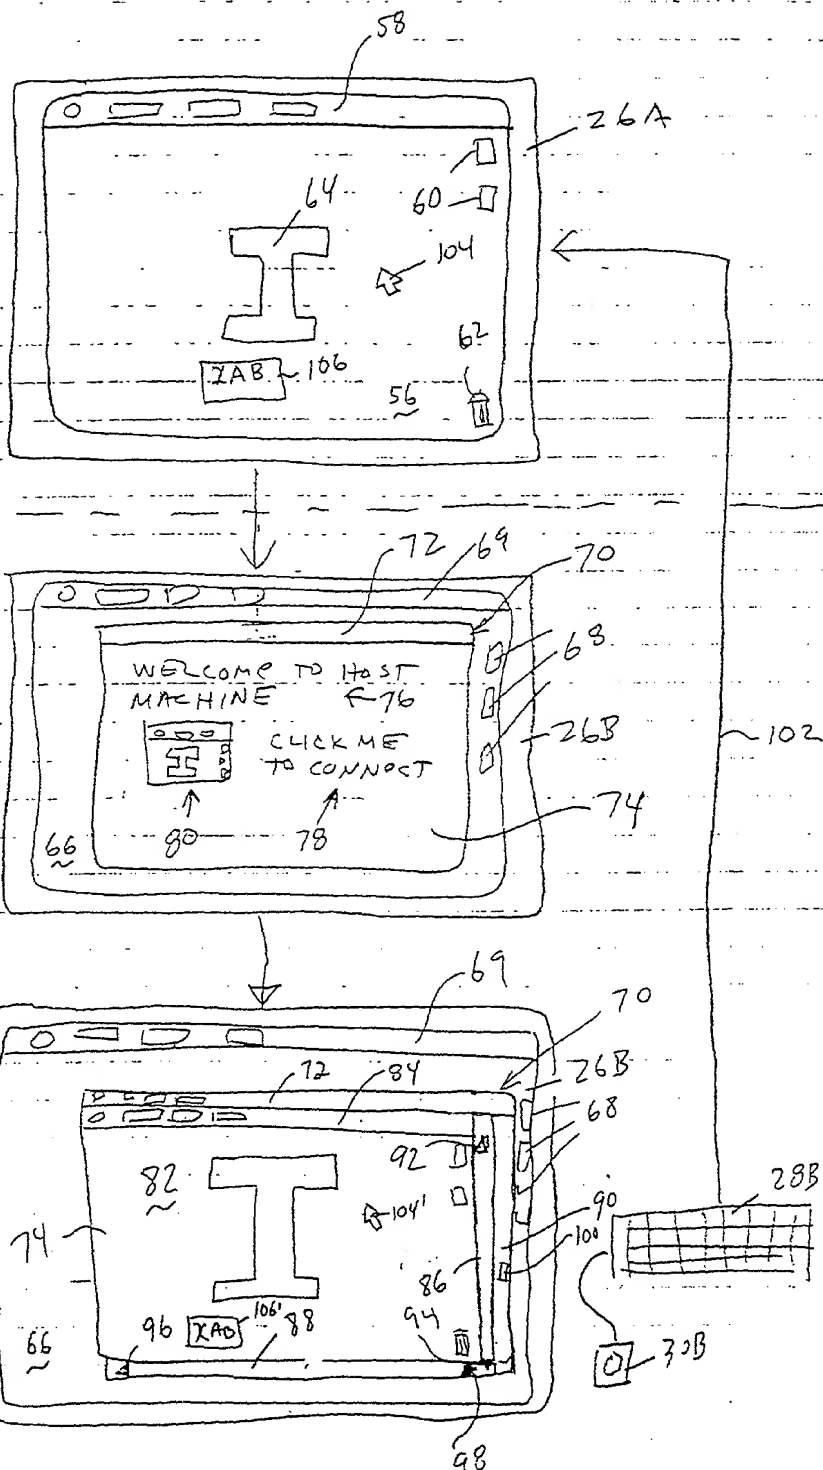 58
26A
64
60
104
62
XAB
106
56
72
69
70
WELCOME TO HOST
MACHINE
76
68
CLICK ME
TO CONNECT
26B
102
74
80
78
66
69
70
72
84
26B
68
92
82
104'
28B
90
100
74
86
106'
XAB
88
94
96
66
30B
98